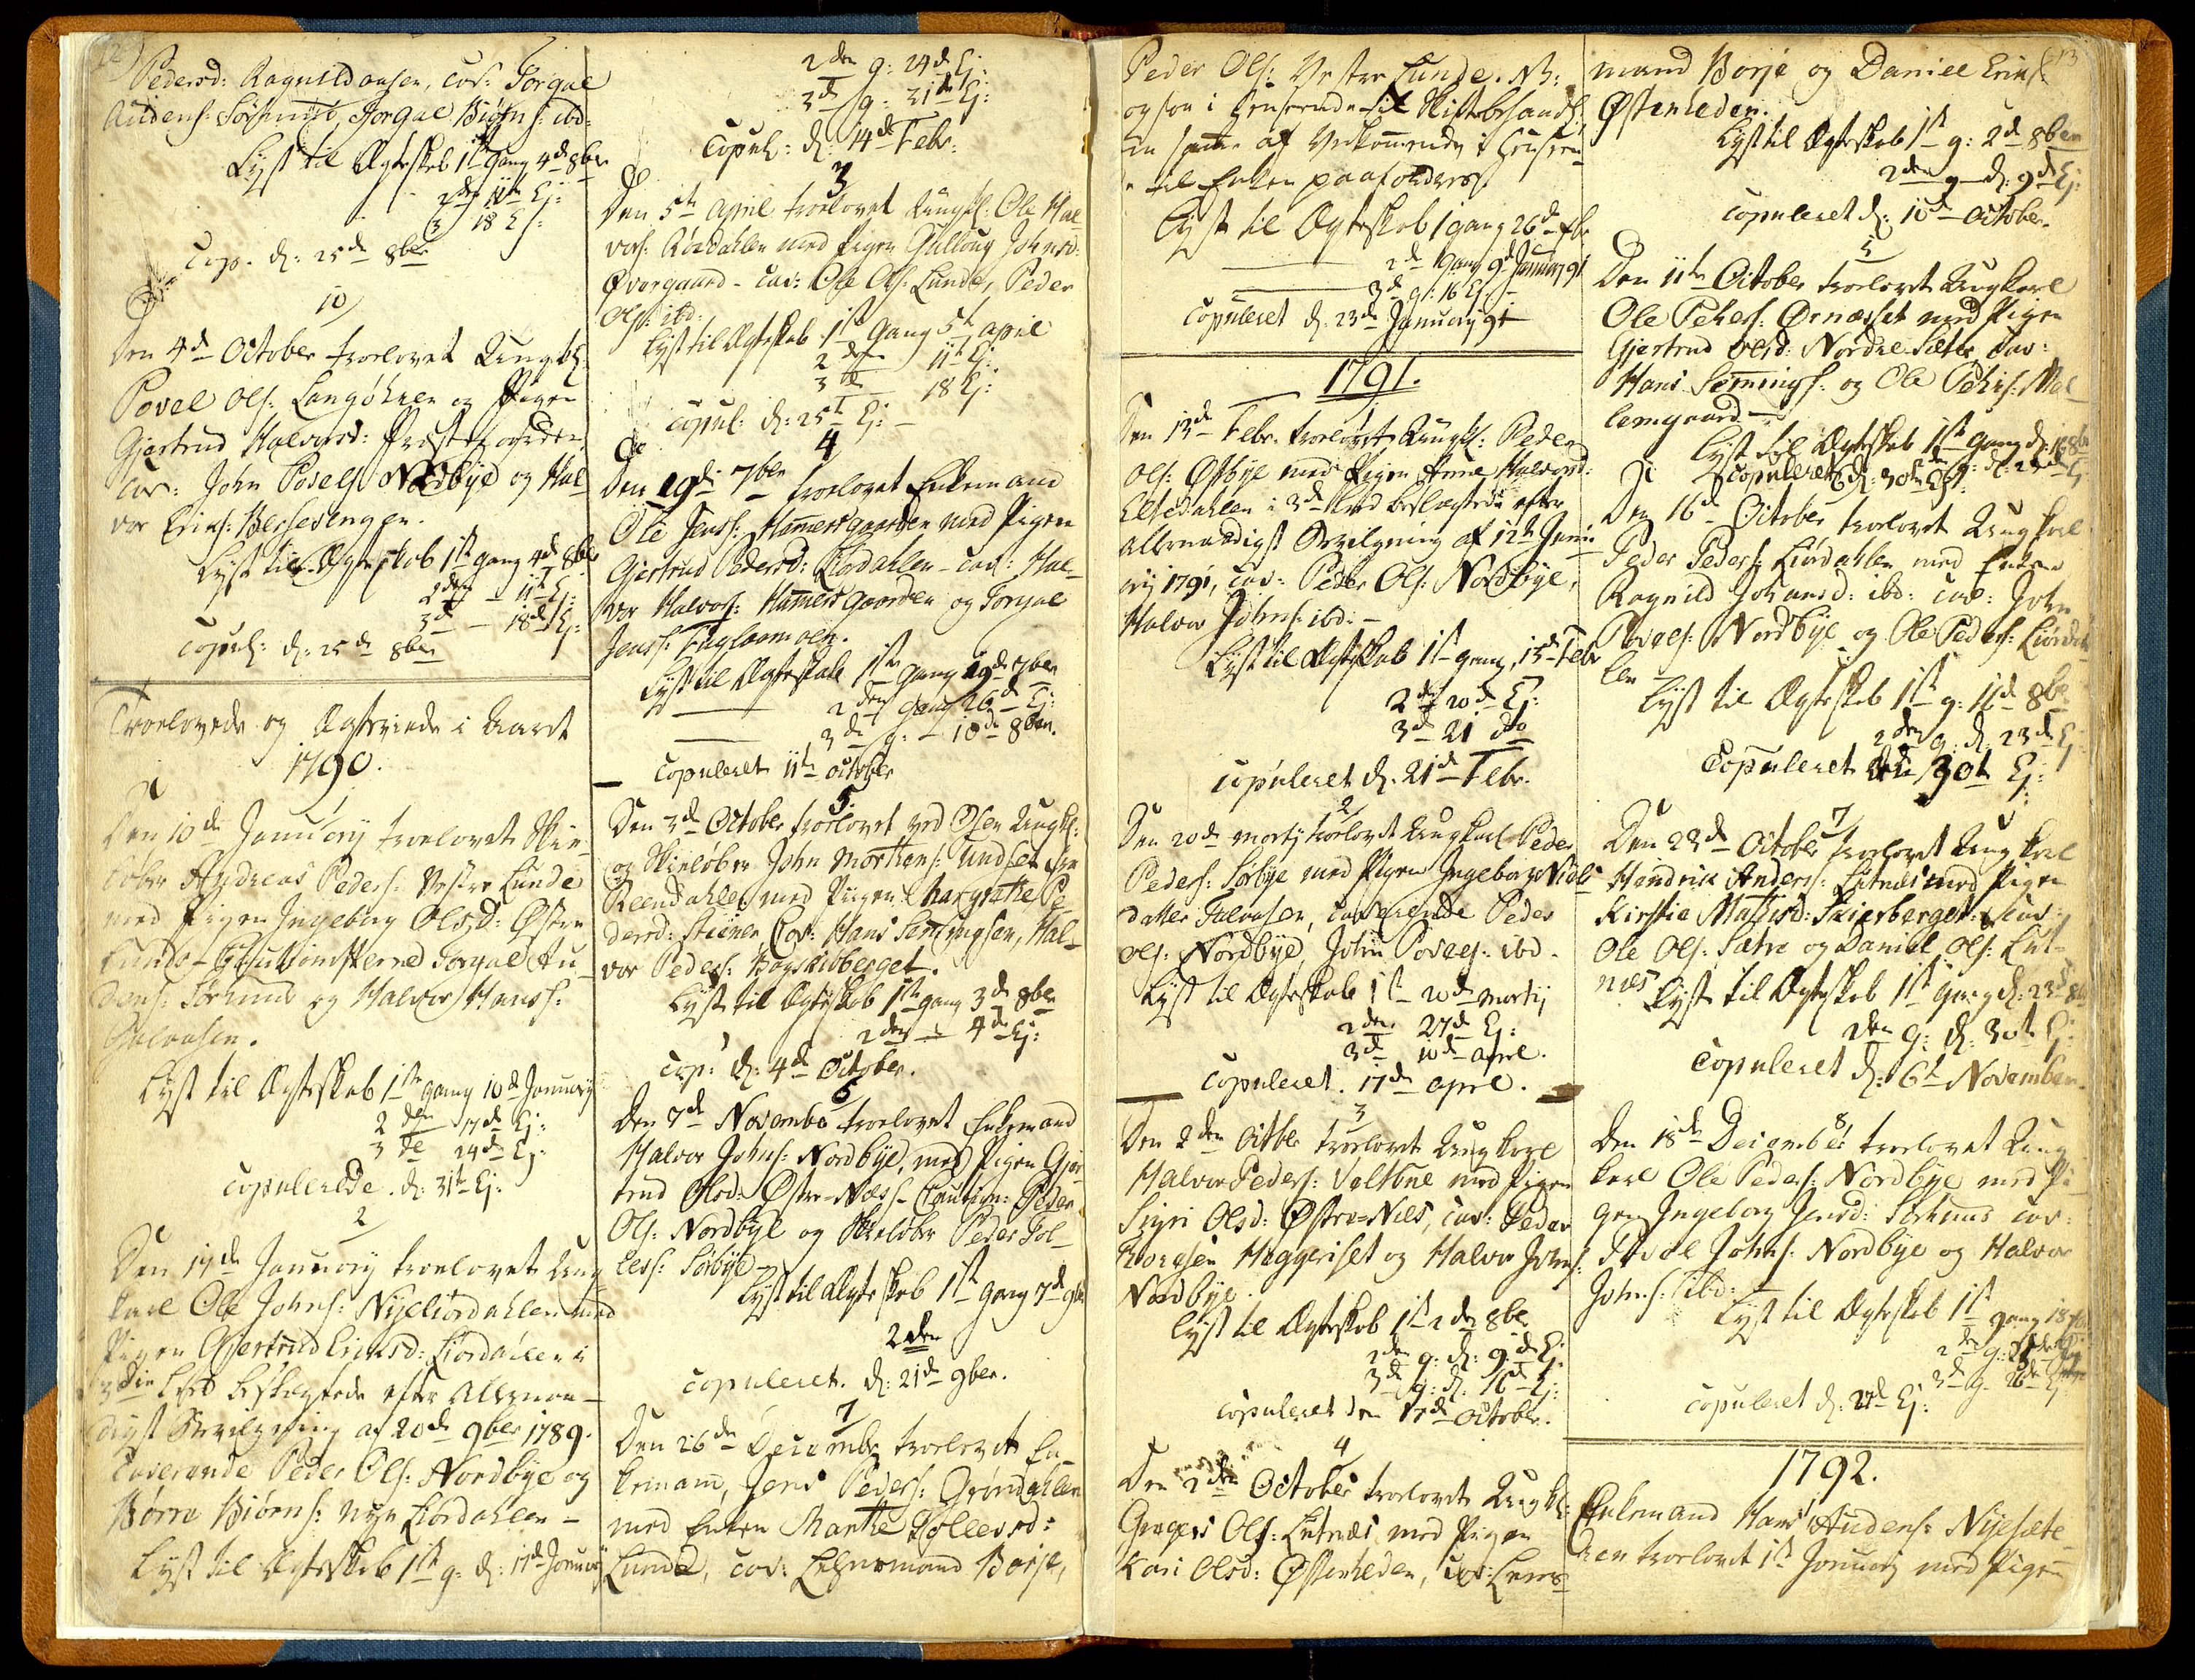 12
Pedersd: Ragnildaasen, cav: Torgal
Audens: Sørhuus, Torgal Biørns: ibd:
Lyst til Ægteskab 1ste Gang 4de 8ber
2den 11te Ej:
3 18 Ej:
Cop. d: 25de 8ber
10
Den 4de October troelovet Ungk:
Povel Ols: Langøhren og Pigen
Gjertrud Halvorsd:
Cav: John Povels: Nordbye og Hal-
vor Eriks: Bersesengen.
Lyst til Ægteskab 1ste gang 4de 8ber
2den — 11te Ej:
3de — 18de Ej:
Copul: d: 25de 8ber
Troelovede og Ægteviede i Aaret
1790.
1
Den 10de January troelovet Skie-
løber Andreas Peders: Vestre Lunde
med Pigen Ingeborg Olsd: Østre
Lunde - Torgal Au-
dens: Sørhuus og Halvor Hans:
Galaasen.
Lyst til Ægteskab 1ste gang 10de January
2den 17de Ej:
3de 24de Ej:
copulerede d: 31te Ej:
2
Den 17de January troelovet Ung
karl Ole Johns: Nyeliørdahlen med
Pigen Gjertrud Eriksd: Liørdalen i
3die Leed beslægtede efter Allernaa-
digst Bevilgning af 20de 9ber 1789.
Caverende Peder Ols: Nordbye og
Børre Biørns: nye Liørdahlen -
Lyst til Ægteskab 1ste g: d: 17de January
2den g: 24de Ej:
3de g: 31te Ej:
Copul: d: 14de Febr:
3
Den 5te April troelovet Ungk: Ole Hal
vors: Rørdahlen med Pigen Gullaug Johnsd:
Øvergaard - cav: Ole Ols: Lunde, Peder
Ols: ibd:
Lyst til Ægteskab 1ste Gang 5te April
2den 11te Ej:
3de 18 Ej:
copul: d: 25te Ej: -
4
Den 19de 7ber troelovet Enkemand
Ole Jens: Hammersgaarden med Pigen
Gjertrud Pedersd: Liørdahlen - cav: Hal-
vor Halvors: Hammersgaarden og Torgal
Jens: Fagsaamoen.
Lyst til Ægteskab 1ste Gang 19de 7ber
2den Gang 26de Ej:
3de g: - 10de 8ber.
Copuleret 11te October
5
Den 3de October troelovet ved Osen Ungk:
og Skieløber John Mortens: Tundset fra
Reendahlen med Pigen Margrethe Pe-
dersd: Steenen Cav: Hans Semingsen, Hal-
vor Peders: Bergskiberget.
Lyst til Ægteskab 1ste gang 3de 8ber
2den — 4de Ej:
Cop: d: 4de October.
6
Den 7de November troelovet Enkemand
Halvor Johns: Nordbye, med Pigen Gjer-
trud Olsd: Østre-Næss - Caution: Peder
Ols: Nordbye og Skieløber Peder Tol-
lefs: Sørbye -
Lyst til Ægteskab 1ste Gang 7de 9ber
2den
copuleret d: 21de 9ber.
7
Den 26de Decembr troelovet En-
kemand, Jens Peders: Grøndahlen
med Enken Marthe Tollevsd:
Lunde, cav: Lehnsmand Borje,
Peder Ols: Vestre Lunde. NB:
Lyst til Ægteskab 1 gang 26de
2den Gang 9de January 91
3de g: 16 Ej:
Copuleret d: 23de January 91
1791.
Den 13de Febr. troelovet Ungk: Peder
Ols: Østbye med Pigen Anne Halvorsd:
i 3de Leed beslægtede efter
Allernaadigst Bevilgning af 12te Janu
arij 1791, cav: Peder Ols: Nordbye,
Halvor Johns: ibd: -
Lyst til Ægteskab 1ste gang, 13de Febr
2den 20de Ej:
3de 21 dto
copuleret d: 21de Febr.
2
Den 20de Martij troelovet Ungkarl Peder
Peders: Sørbye med Pigen Ingeborg Niels
datter Galaasen, caverende Peder
Ols: Nordbye, John Povels: ibd.
Lyst til Ægteskab 1ste 20de Martij
2den 27de Ej:
3de 10de April.
copuleret. 17de April.
3
Den 2den Octbr troelovet Ungkarl
Halvor Peders: Veltone med Pigen
Sigri Olsd: Østre-Næs, cav: Peder
Haagsen Heggeriset og Halvor Johns:
Nordbye.
Lyst til Ægteskab 1ste 2den 8ber
2den g: d: 9de Ej:
3de g: d: 16de Ej:
copuleret den 17de October.
4
Den 2den October troelovet Ungk:
Gregers Ols: Lutnæs med Pigen
Kari Olsd: Østenheden, cav: Lens
13
mand Borje og Daniel Eriks:
Østenheden.
Lyst til Ægteskab 1ste g: 2de 8ber
2den g d: 9de Ej:
copuleret d: 10de October.
5
Den 11te October troelovet Ungkarl
Ole Pehrs: Ørnæsset med Pigen
Gjertrud Olsd: Nordre-Sæter, cav:
Hans Semmings: og Ole Pehrs: Mel
lemgaard -
Lyst til Ægteskab 1ste Gang d: 16 8br
2den g: d: 23de Ej
copuleret d: 30te Ej:
6
Den 16de October troelovet Ungkarl
Peder Peders: Liørdahlen med Enken
Ragnild Johansd: ibd: cav: John
Povels: Nordbye og Ole Peders: Liørdah-
len -
Lyst til Ægteskab 1ste g: 16de 8br
2den g: d: 23de Ej
Copuleret den 30te Ej:
7
Den 23de October troelovet Ungkarl
Hendrik Anders: Lutnæs med Pigen
Kirstie Mattisd: Skierberget, cav:
Ole Ols: Sætre og Daniel Ols: Lut-
næs
Lyst til Ægteskab 1ste Gang d: 23de 8br
2den g: d: 30te Ej:
Copuleret d: 6te November.
8
Den 18de December troelovet Ung
karl Ole Peders: Nordbye med Pi
gen Ingeborg Jensd: Sørhuus cav:
Povel Johns: Nordbye og Halvor
Johns: ibd: -
Lyst til Ægteskab 1ste Gang 18
2den g:
3de g. 26de
copuleret d: 27de Ej:
1792.
1
Enkemand Hans Audens: Nyesæte
ren troelovet 1ste January med Pigen